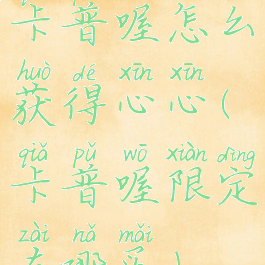 卡普喔怎么
huò dé xīn xīn
获得心心(
qiǎ pǔ wō xiàn dìng
卡普喔限定
zài nǎ mǎi
在哪买)